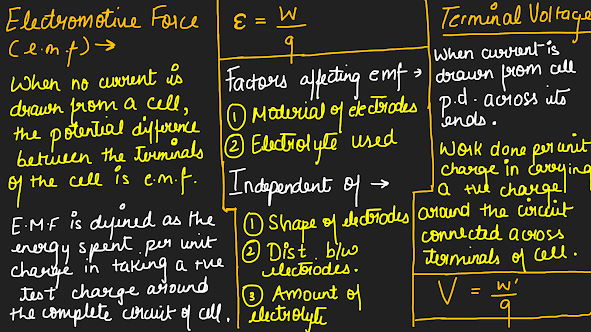 Electromotive Force
(e.m.f) →
When no current is
drawn from a cell,
the potential difference
between the terminals
of the cell is e.m.f.
E.M.F is defined as the
energy spent per unit
charge in taking a +ve
test charge around
the complete circuit of cell.
ε = W/q
Factors affecting emf →
① Material of electrodes
② Electrolyte used
Independent of →
① Shape of electrodes
② Dist. b/w
electrodes.
③ Amount of
electrolyte
Terminal Voltage
When current is
drawn from cell
p.d. across its
ends.
Work done per unit
charge in carrying
a +ve charge
around the circuit
connected across
terminals of cell.
V = w'/q